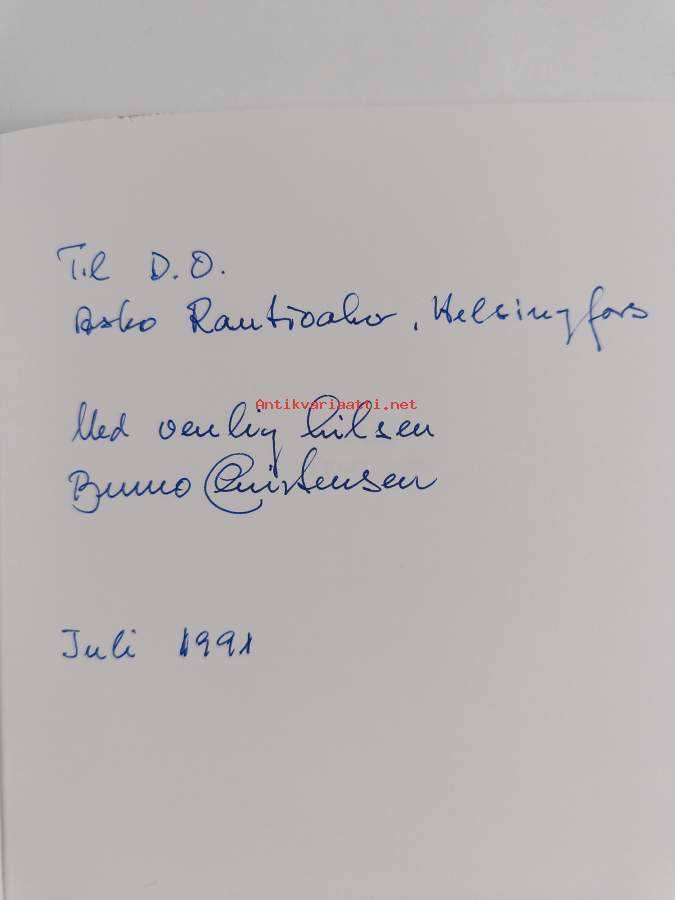 Til D.O.
Asko Rantioaho, Helsingfors
Antikvariaatti.net
Med venlig hilsen
Bruno Christensen
Juli 1991